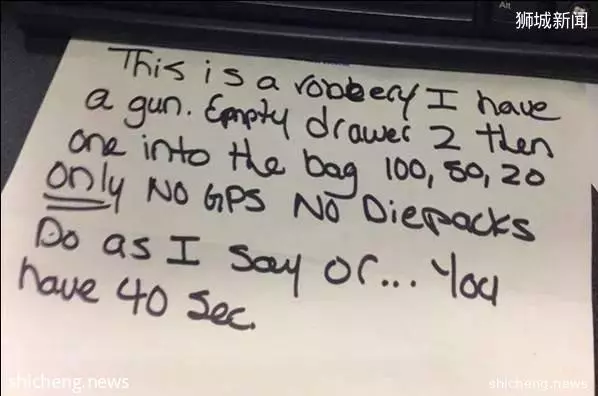 狮城新闻
Alt
This is a robbery I have
a gun. Empty drawer 2 then
one into the bag 100, 50, 20
only NO GPS NO Diepacks
Do as I say or... You
have 40 Sec.
shicheng.news
shicheng.news